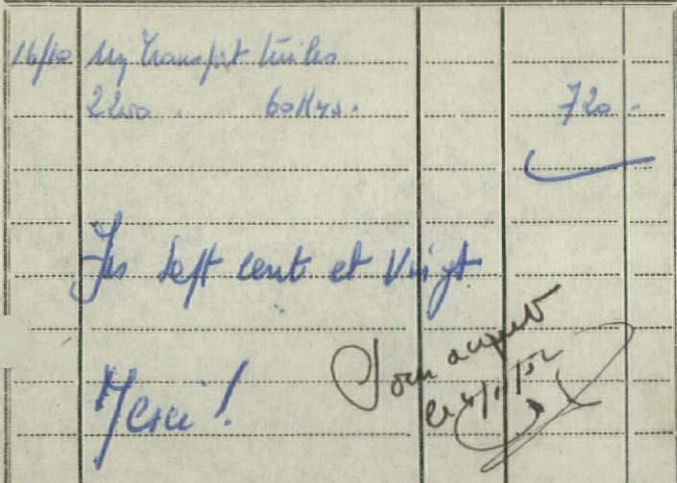 16/10 My Transport tuiles
2200 . 60 Kms . 720 -
Frs Sept cent et Vingt
Pour acquit
Merci !